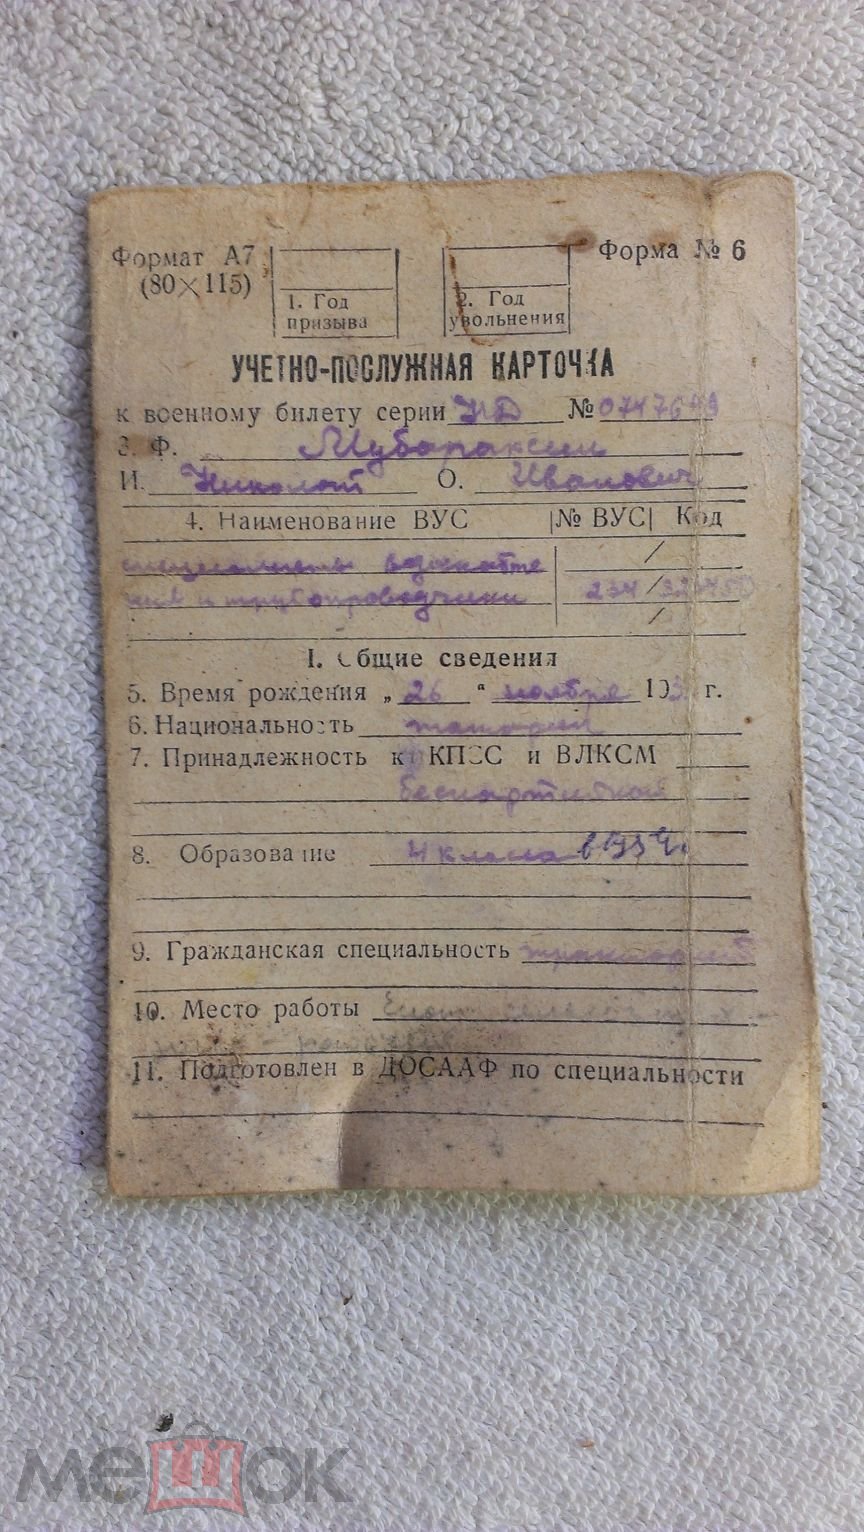 Формат А7
(80×115)
1. Год
призыва
2. Год
увольнения
Форма № 6
УЧЕТНО-ПОСЛУЖНАЯ КАРТОЧКА
к военному билету серии НД № 0747649
3. Ф.
И. Николай О. Иванович
4. Наименование ВУС |№ ВУС| Код
/
и трубопроводчики 234/
/
I. Общие сведения
5. Время рождения „26“ ноября 193 г.
6. Национальность
7. Принадлежность к КПСС и ВЛКСМ
беспартийный
8. Образование 4 класса в
9. Гражданская специальность тракторист
10. Место работы
11. Подготовлен в ДОСААФ по специальности
мешок